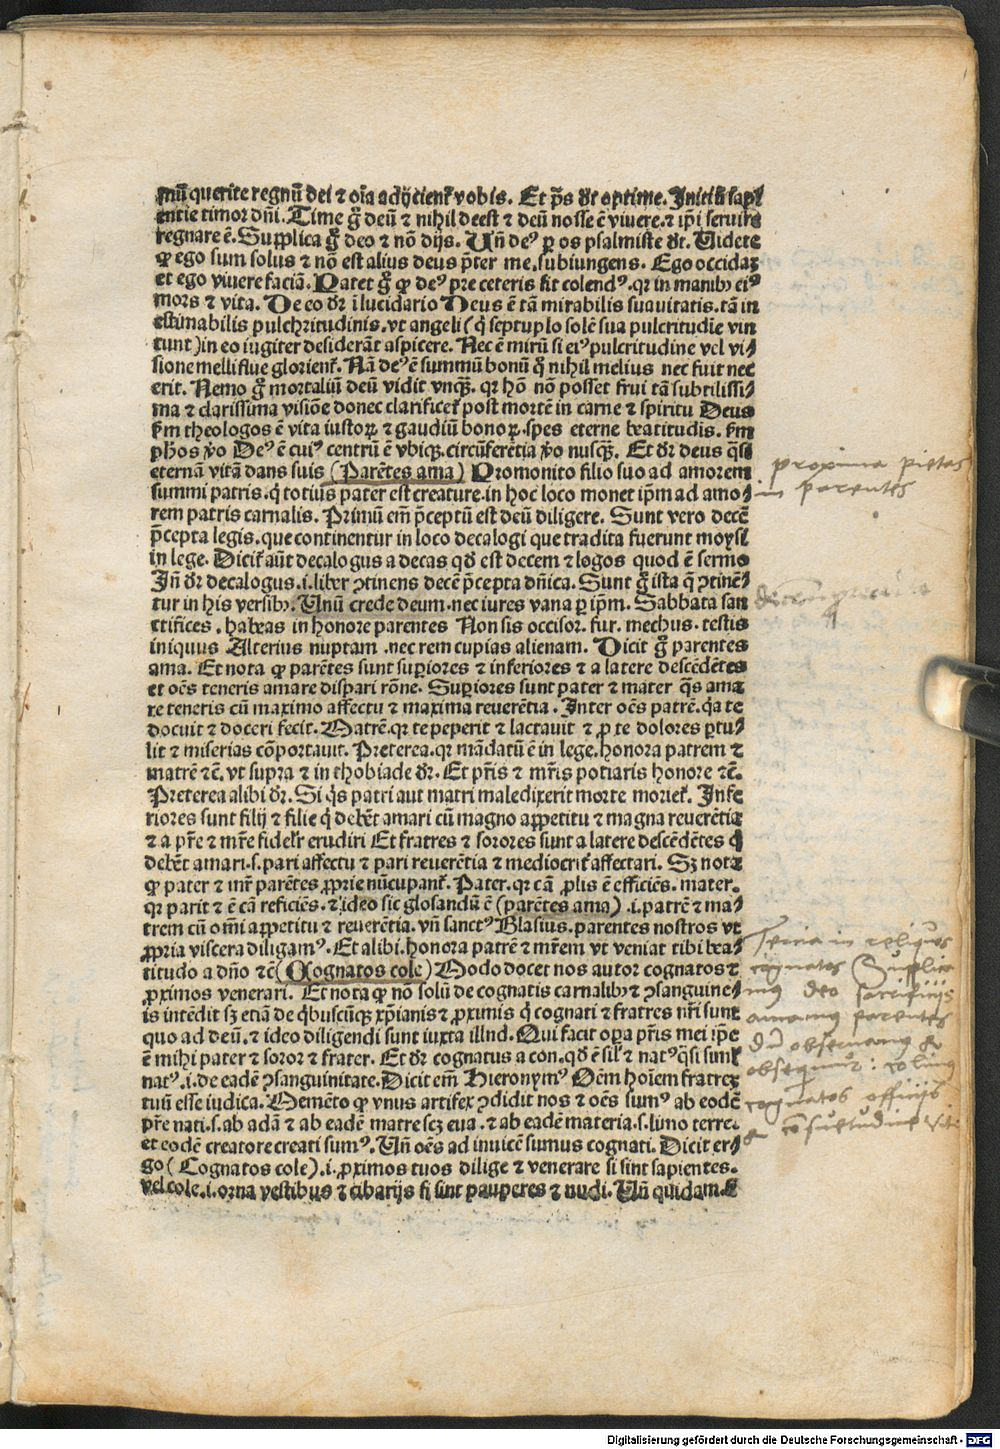 mū querite regnū dei ⁊ oīa adijcient᷑ vobis. Et p̄s d̄r optime. Initiū sapi
entie timor dn̄i. Time gͦ deū ⁊ nihil deest ⁊ deū nosse ē viuere. ⁊ ip̄i seruire
regnare ē. Supplica gͦ deo ⁊ nō dijs. Un̄ deꝰ ꝑ os psalmiste d̄r. Videte
ꝙ ego sum solus ⁊ nō est alius deus p̄ter me. subiungens. Ego occidaꝫ
et ego viuere faciā. Patet gͦ ꝙ deꝰ pre ceteris sit colendꝰ. qꝛ in manibꝫ eiꝰ
mors ⁊ vita. De eo d̄r ī lucidario Deus ē tā mirabilis suauitatis. tā in
estimabilis pulchritudinis. vt angeli (q̇ septuplo solē sua pulcritudīe vin
cunt) in eo iugiter desiderāt aspicere. Nec ē mirū si eiꝰ pulcritudine vel vi⸗
sione melliflue glorient᷑. Nā deꝰ ē summū bonū q̊ nihil melius nec fuit nec
erit. Nemo gͦ mortaliū deū vidit vnqꝫ. qꝛ hō nō posset frui tā subtilissi⸗
ma ⁊ clarissima visiōe donec clarificet᷑ post mortē in carne ⁊ spiritu Deus
s̄m theologos ē vita iustoꝝ ⁊ gaudiū bonoꝝ. spes eterne beatitudis. s̄m
ph̄os v̊o Deꝰ ē cuiꝰ centrū ē vbiqꝫ. circūferētia v̊o nusqꝫ. Et d̄r deus q̄si
eternā vitā dans suis (Parētes ama) Promonito filio suo ad amorem
summi patris. q̇ totius pater est creature. in hoc loco monet ip̄m ad amo⸗
rem patris carnalis. Primū em̄ p̄ceptū est deū diligere. Sunt vero decē
p̄cepta legis. que continentur in loco decalogi que tradita fuerunt moysi
in lege. Dicit᷑ aūt decalogus a decas qd̄ est decem ⁊ logos quod ē sermo
In̄ d̄r decalogus .i. liber ꝯtinens decē p̄cepta dn̄ica. Sunt gͦ ista q̄ ꝯtinē⸗
tur in his versibꝫ. Unū crede deum. nec iures vana ꝑ ip̄m. Sabbata san
ctifices. habeas in honore parentes Non sis occisor. fur. mechus. testis
iniquus Alterius nuptam. nec rem cupias alienam. Dicit gͦ parentes
ama. Et nota ꝙ parētes sunt suꝑiores ⁊ inferiores ⁊ a latere descēdētes
et oēs teneris amare dispari rōne. Suꝑiores sunt pater ⁊ mater q̄s ama
re teneris cū maximo affectu ⁊ maxima reuerētia. Inter oēs patrē. q̇a te
docuit ⁊ doceri fecit. Matrē. qꝛ te peperit ⁊ lactauit ⁊ ꝓ te dolores ꝑtu⸗
lit ⁊ miserias cōportauit. Preterea. qꝛ mādatū ē in lege. honora patrem ⁊
matrē ⁊c̄. vt supra ⁊ in thobiade d̄r. Et pr̄is ⁊ mr̄is potiaris honore ⁊c̄.
Preterea alibi d̄r. Si q̇s patri aut matri maledixerit morte moriet᷑. Infe
riores sunt filij ⁊ filie q̇ debēt amari cū magno appetitu ⁊ magna reuerētia
⁊ a pr̄e ⁊ mr̄e fidelr̄ erudiri Et fratres ⁊ sorores sunt a latere descēdētes q̇
debēt amari .s. pari affectu ⁊ pari reuerētia ⁊ mediocrit᷑ affectari. Sꝫ nota
ꝙ pater ⁊ mr̄ parētes ꝓprie nūcupant᷑. Pater. qꝛ cā ꝓlis ē efficiēs. mater.
qꝛ parit ⁊ ē cā reficiēs. ⁊ ideo sic glosandū ē (parētes ama) .i. patrē ⁊ ma⸗
trem cū om̄i appetitu ⁊ reuerētia. vn̄ sanctꝰ Blasius. parentes nostros vt
ꝓpria viscera diligamꝰ. Et alibi. honora patrē ⁊ mr̄em vt veniat tibi bea⸗
titudo a dn̄o ⁊c̄ (Cognatos cole) Modo docet nos autor cognatos ⁊
ꝓximos venerari. Et nota ꝙ nō solū de cognatis carnalibꝫ ⁊ ꝯsanguine⸗
is intēdit sꝫ etiā de q̇buscūqꝫ xp̄ianis ⁊ ꝓximis q̇ cognati ⁊ fratres nr̄i sunt
quo ad deū. ⁊ ideo diligendi sunt iuxta illud. Qui facit oꝑa pr̄is mei ip̄e
ē mihi pater ⁊ soror ⁊ frater. Et d̄r cognatus a con. qd̄ ē sil᷑ ⁊ natꝰ q̄si simul
natꝰ .i. de eadē ꝯsanguinitate. Dicit em̄ Hieronymꝰ Oēm hoīem fratreꝫ
tuū esse iudica. Memēto ꝙ vnus artifex ꝯdidit nos ⁊ oēs sumꝰ ab eodē
pr̄e nati .s. ab adā ⁊ ab eadē matre scꝫ eua. ⁊ ab eadē materia .s. limo terre.
et eodē creatore creati sumꝰ. Un̄ oēs ad inuicē sumus cognati. Dicit er⸗
go (Cognatos cole) .i. ꝓximos tuos dilige ⁊ venerare si sint sapientes.
vel cole .i. orna vestibus ⁊ cibarijs si sint pauperes ⁊ nudi. Un̄ quidam. E
proxima pietas
in parentes
Tercia in reliquos
cognatos Supplica
mus deo sacrificijs
amamus parentes
obseruamus &
obsequimur: colimus
cognatos officijs
& consuetudine vite
Digitalisierung gefördert durch die Deutsche Forschungsgemeinschaft - DFG